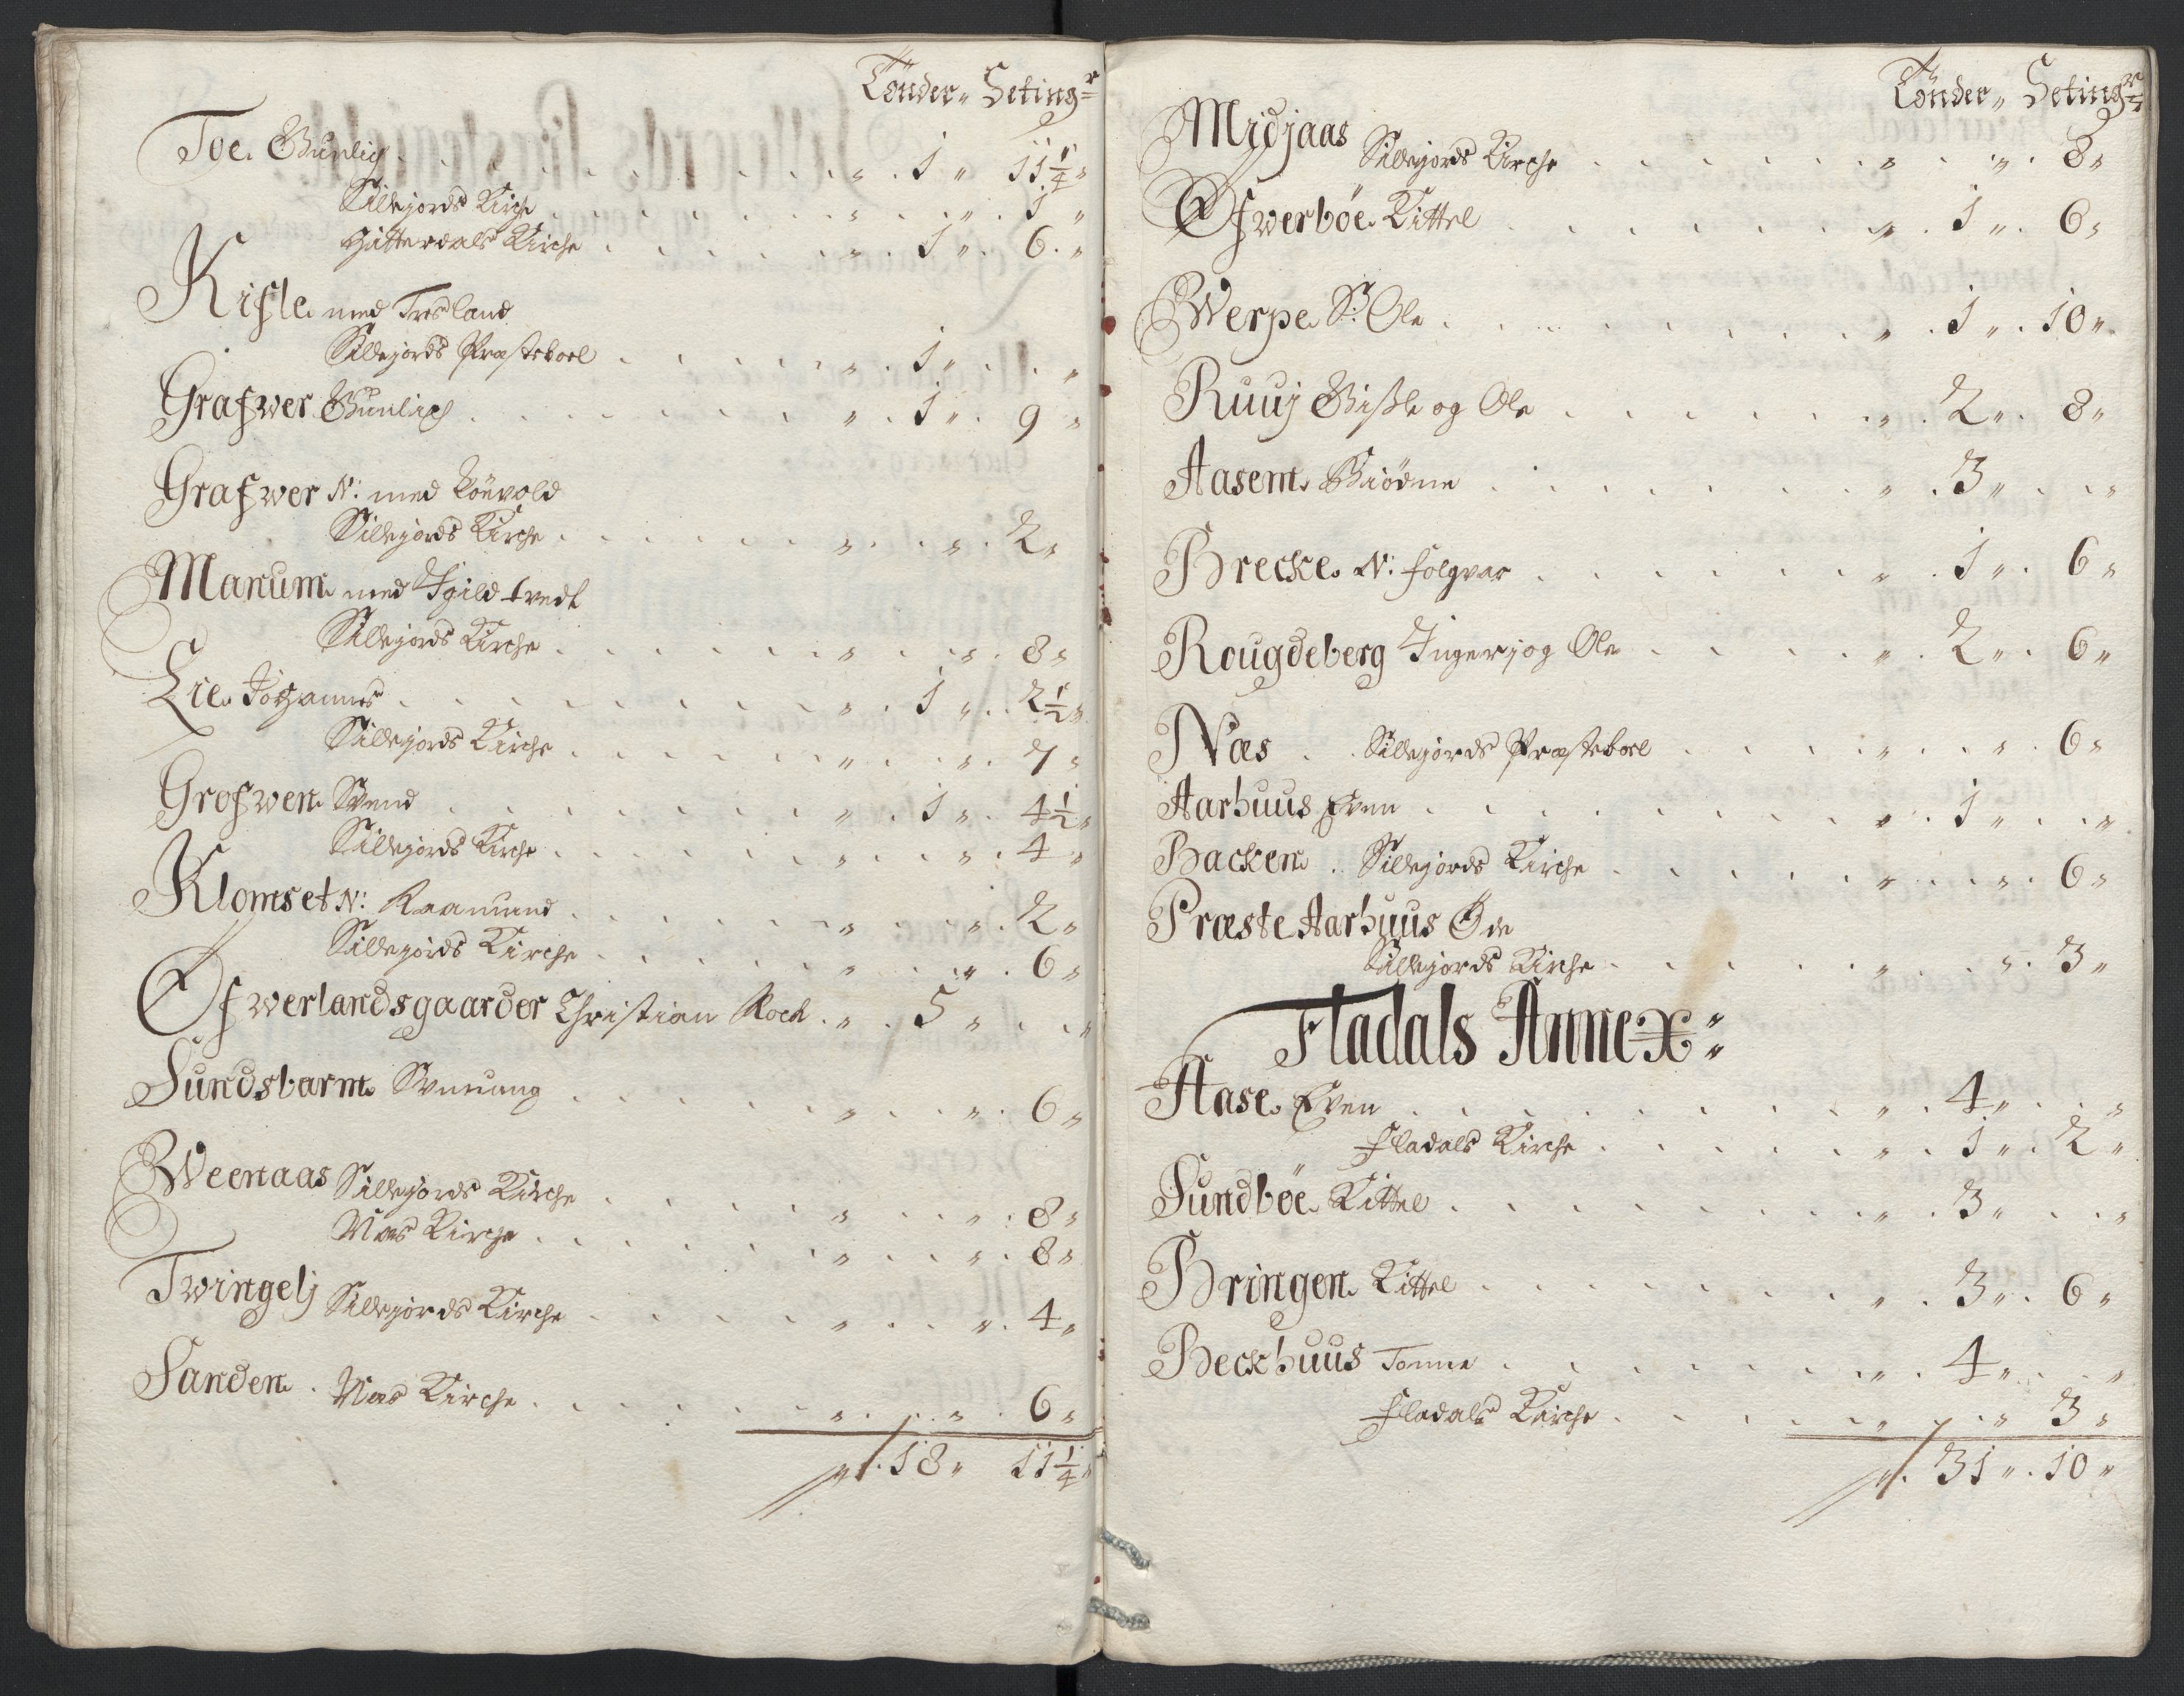 Tönder„ Setingr
Toe. Gunlich . . . „ . 1 „ 11 1/4 „
Sillejords Kirche . . . „ . . „ . 1 „
Hitterdals Kirche . . . „ . 1 „ . 6 . „
Kisle. med Trædland
Sillejords Præsteboel . . . „ . 1 „ . . „
Grafwer Gunlich . . . „ . 1 „ . 9 „
Grafwer N: med Löuvold
Sillejords Kirche . . . „ . . „ . 2 „
Manum. med Igildtvedt
Sillejords Kirche . . . „ . . „ . 8 „
Lie. Johannes . . . „ . 1 „ . . 2 1/2 „
Sillejords Kirche . . . „ . . „ . 7 „
Grofwen. Svend . . . „ . 1 „ . 4 1/2 „
Sillejords Kirche . . . „ . . „ . 4 „
Klomset N: Raamund . . . „ . . „ . 2 „
Sillejords Kirche . . . „ . . „ . 6 „
Ofwerlandsgaarder Christian Koch . „ . 5 „ . . „
Sundsbarm. Svenung . . . „ . . „ . 6 „
Weenaas Sillejords Kirche . . . „ . . „ . 8 „
Næs Kirche . . . „ . . „ . 8 „
Twingelj Sillejords Kirche . . . „ . . „ . 4 „
Sanden. Næs Kirche . . . „ . . „ . 6 „
„ . 18 „ 11 1/4 „
Tönder„ Setingr
Midjaas Sillejords Kirche . . . „ . . „ . 8 „
Ofwerböe. Kittel . . . „ . 1 „ . 6 „
Werpe. S: Ole . . . „ . 1 „ . 10 „
Ruuj Gisle og Ole . . . „ . 2 „ . 8 „
Aasem. Giödne . . . „ . 3 „ . . „
Brecke. N: Folqvar . . . „ . 1 „ . 6 „
Rougdeberg Ingerj og Ole . . . „ . 2 „ . 6 „
Næs . . Sillejords Præsteboel . . . „ . . „ . 6 „
Aarhuus Even . . . „ . 1 „ . . „
Backen . Sillejords Kirche . . . „ . . „ . 6 „
Præste Aarhuus Öde
Sillejords Kirche . . . „ . . „ . 3 „
Fladals Annex:
Aase. Even . . . „ . 4 „ . . „
Fladals Kirche . . . „ . 1 „ . 2 „
Sundböe. Kittel . . . „ . 3 „ . . „
Bringen. Kittel . . . „ . 3 „ . 6 „
Beckhuus Tonne . . . „ . 4 „ . . „
Fladals Kirche . . . „ . . „ 3 „
„ . 31 „ . 10 „